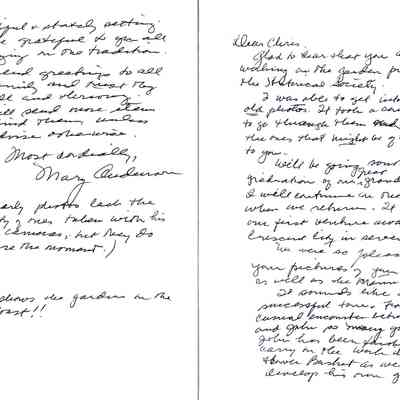 & stately setting
grateful to you all
in our tradition.
send greetings to all
family and trust they
all and thriving
send more items
find them, unless
advise otherwise.
Most cordially,
Mary Anderson
early photos lack the
of ones taken with his
cameras, but they do
the moment.)
shows the garden in the
past!!
Dear Chris,
Glad to hear that you
walking in the garden
the Historical Society.
I was able to get into
old photos. It took a
to go through them and
the ones that might be of
to you.
Will be going
graduation of our great
I will continue
when we return. It
our first venture
Crescent City in
We were so pleased
your pictures of your
as well as the
It sounds like
successful tour.
casual encounter
and John so many
John has been
carry on the work
Flower Basket as well
develop his own